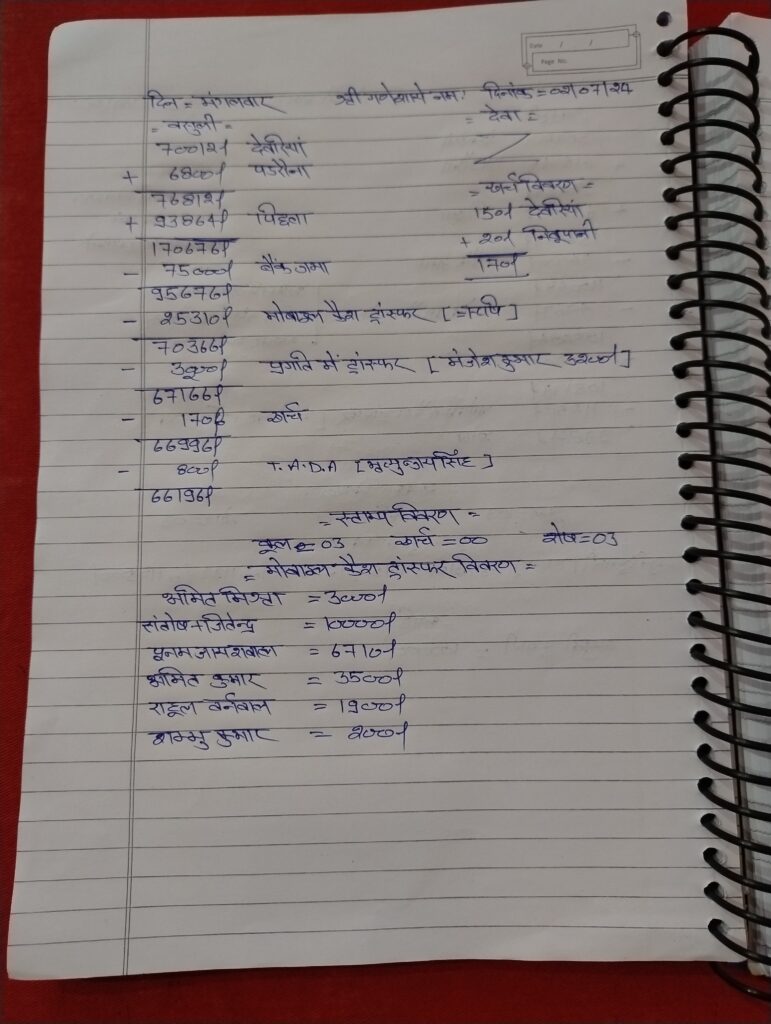 Date / /
Page No.
दिन = मंगलवार श्री गणेशाये नमः दिनांक = 02/07/24
= वसुली = = देवा =
70012/- देवरियां
+ 6800/- पडरौना = खर्च विवरण =
76812/- 150/- देवरियां
+ 93864/- पिछला + 20/-
170676/- 170/-
- 75000/- बैंक जमा
95676/-
- 25310/- मोबाइल कैश ट्रांस्फर
70366/-
- 3200/- प्रगति में ट्रांस्फर [ मंजेश कुमार 3200/- ]
67166/-
- 170/- खर्च
66996/-
- 800/- T.A.D.A [ मृत्युन्जय सिंह ]
66196/-
= स्टाम्प विवरण =
कूल = 03 खर्च = 00 शेष = 03
= मोबाइल कैश ट्रांस्फर विवरण =
अमित मिश्रा = 3000/-
संतोष + जितेन्द्र = 10000/-
पूनम जायसवाल = 6710/-
अमित कुमार = 3500/-
राहूल वर्नवाल = 1900/-
शम्भु कुमार = 200/-